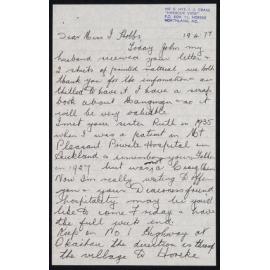 MR & MRS J. A. CRANE
"HARBOUR VIEW"
P.O. BOX 11, HOREKE
NORTHLAND, N.Z.
19 4 77
Dear Miss I Hobbs
Today John my
husband received your letter &
2 sheets of printed material we both
thank you for the information as
thrilled to have it I have a scrap
book about Mangungu so it
will be very valuable
I met your sister Ruth in 1935
when I was a patient in Mt
Pleasant Private Hospital in
Auckland & remember your Father
in 1927 but was a
Now I'm really writing to offer
you & your Deaconess friend
Hospitality may be you'd
like to come Friday & have
the full week end.
Keep on No 1 Highway at
Okaihau the direction is through
the village to Horeke